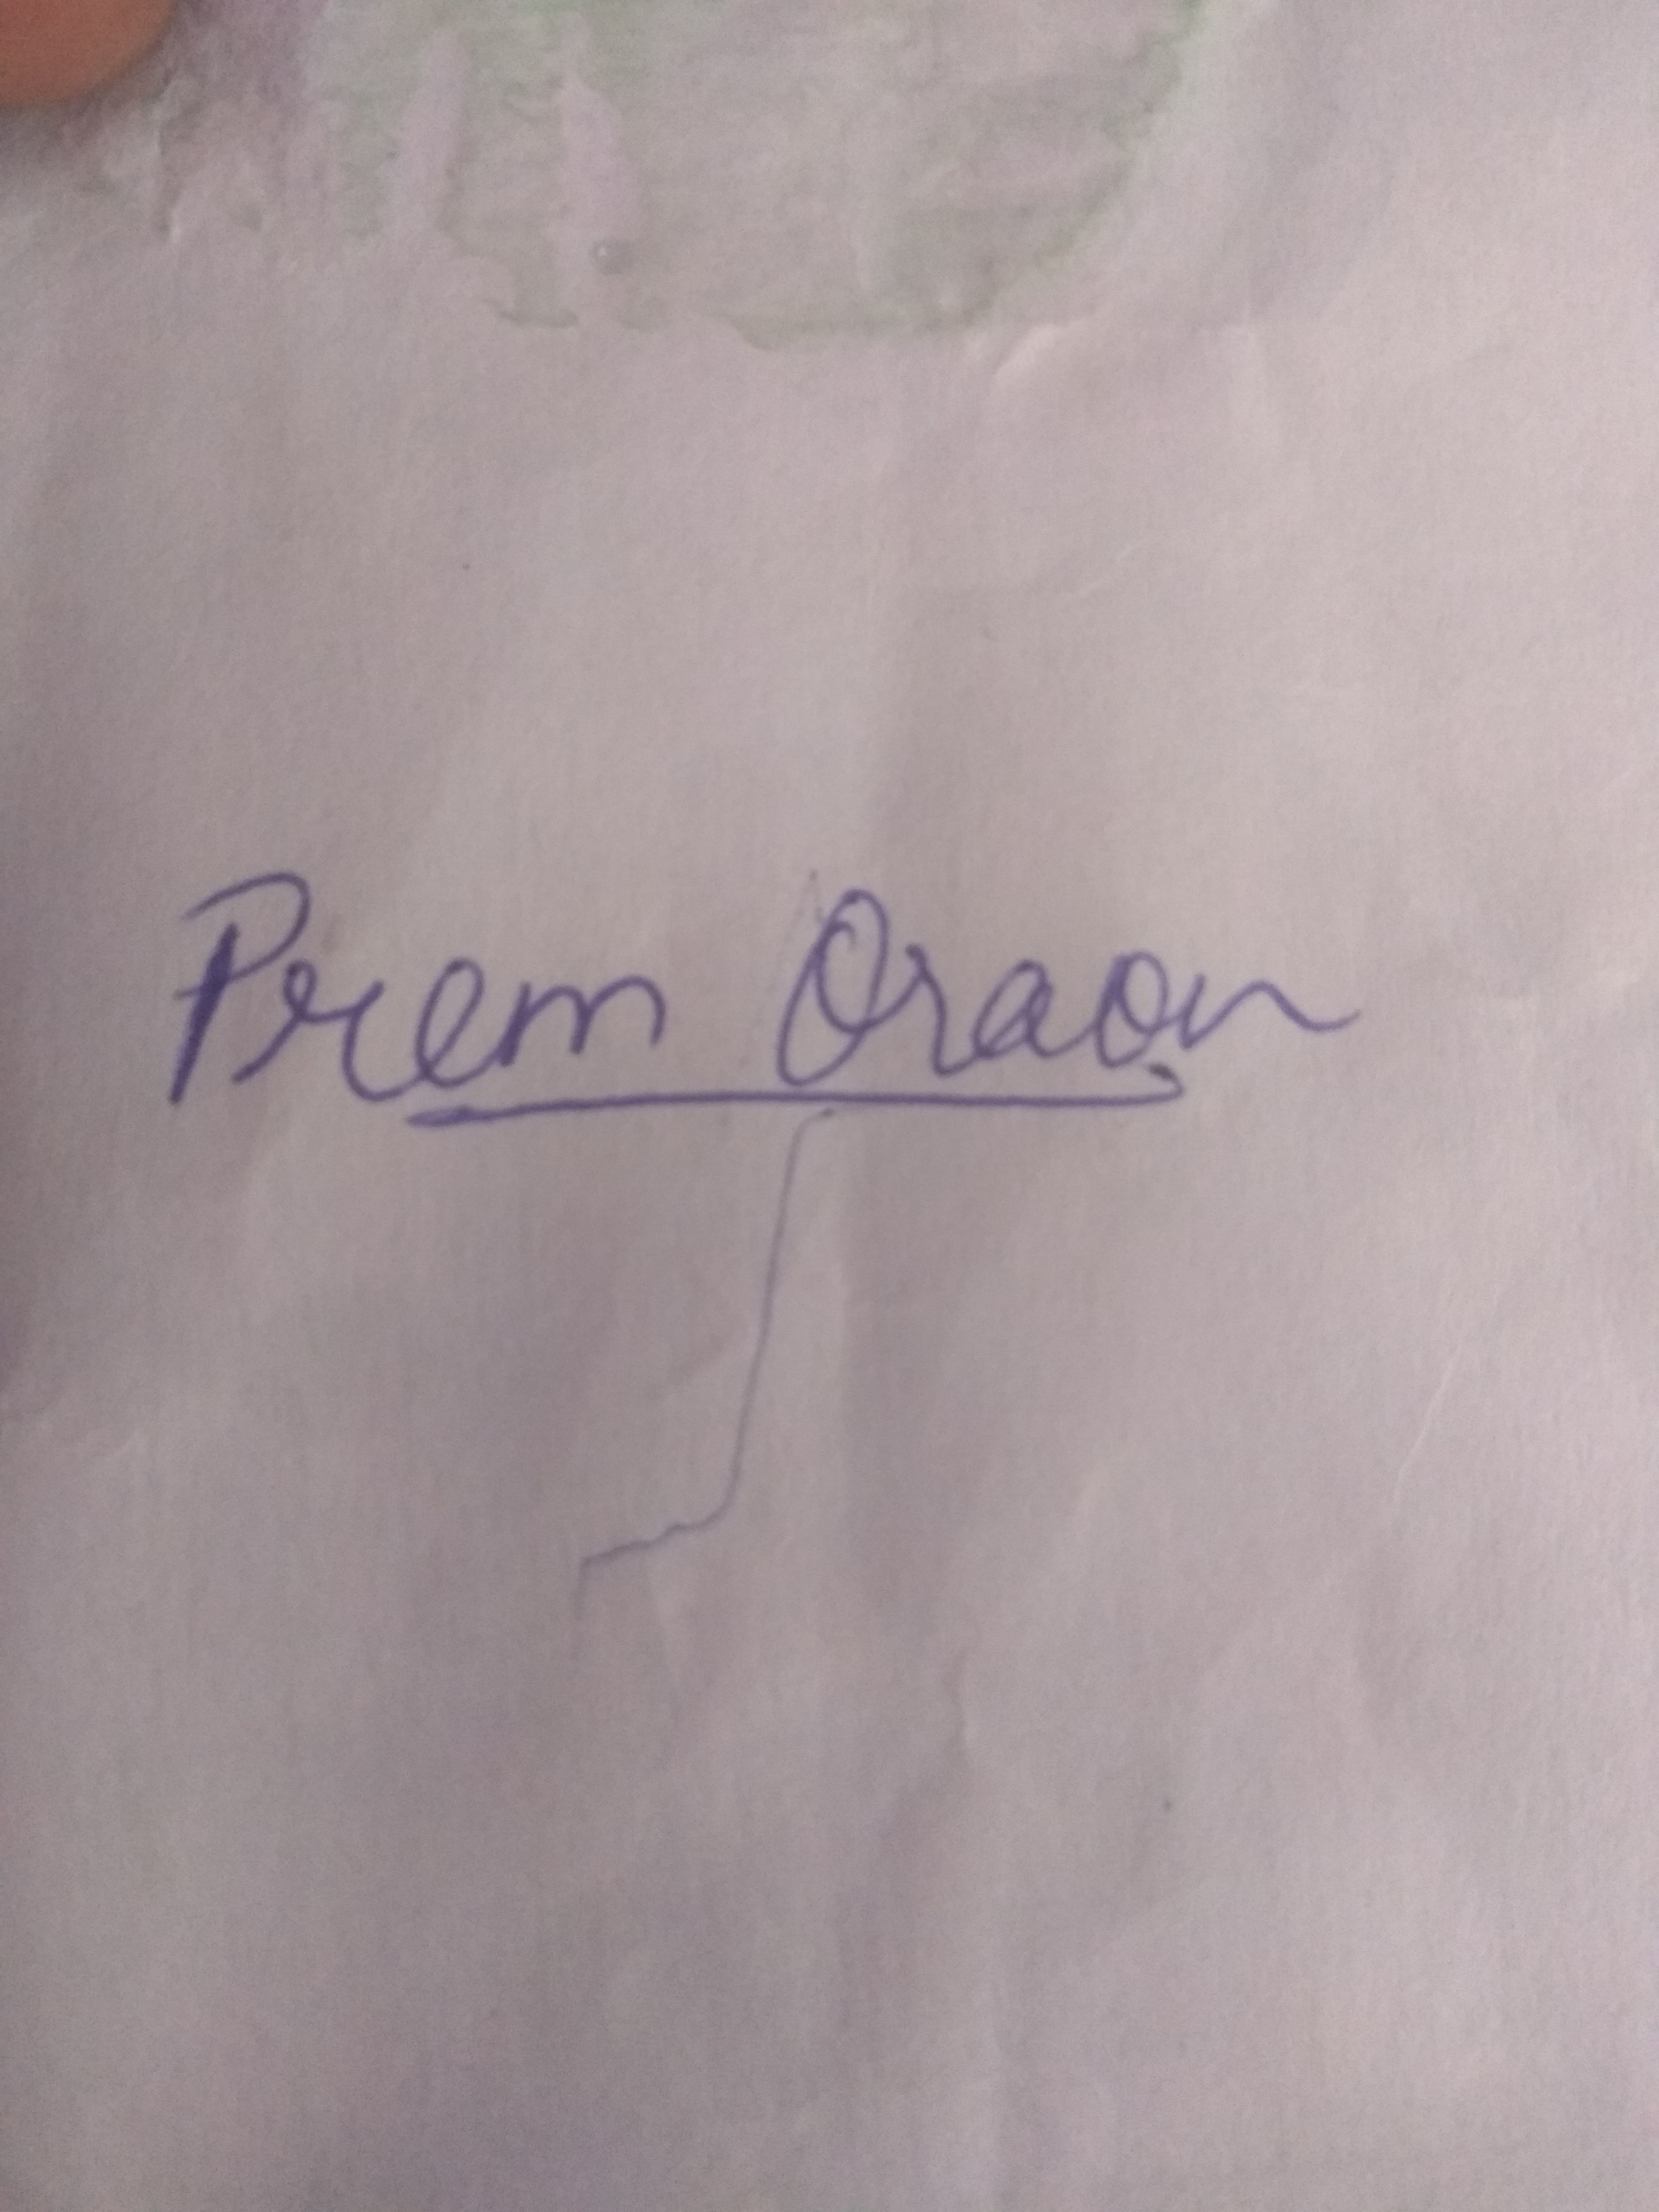 Prem Oraon